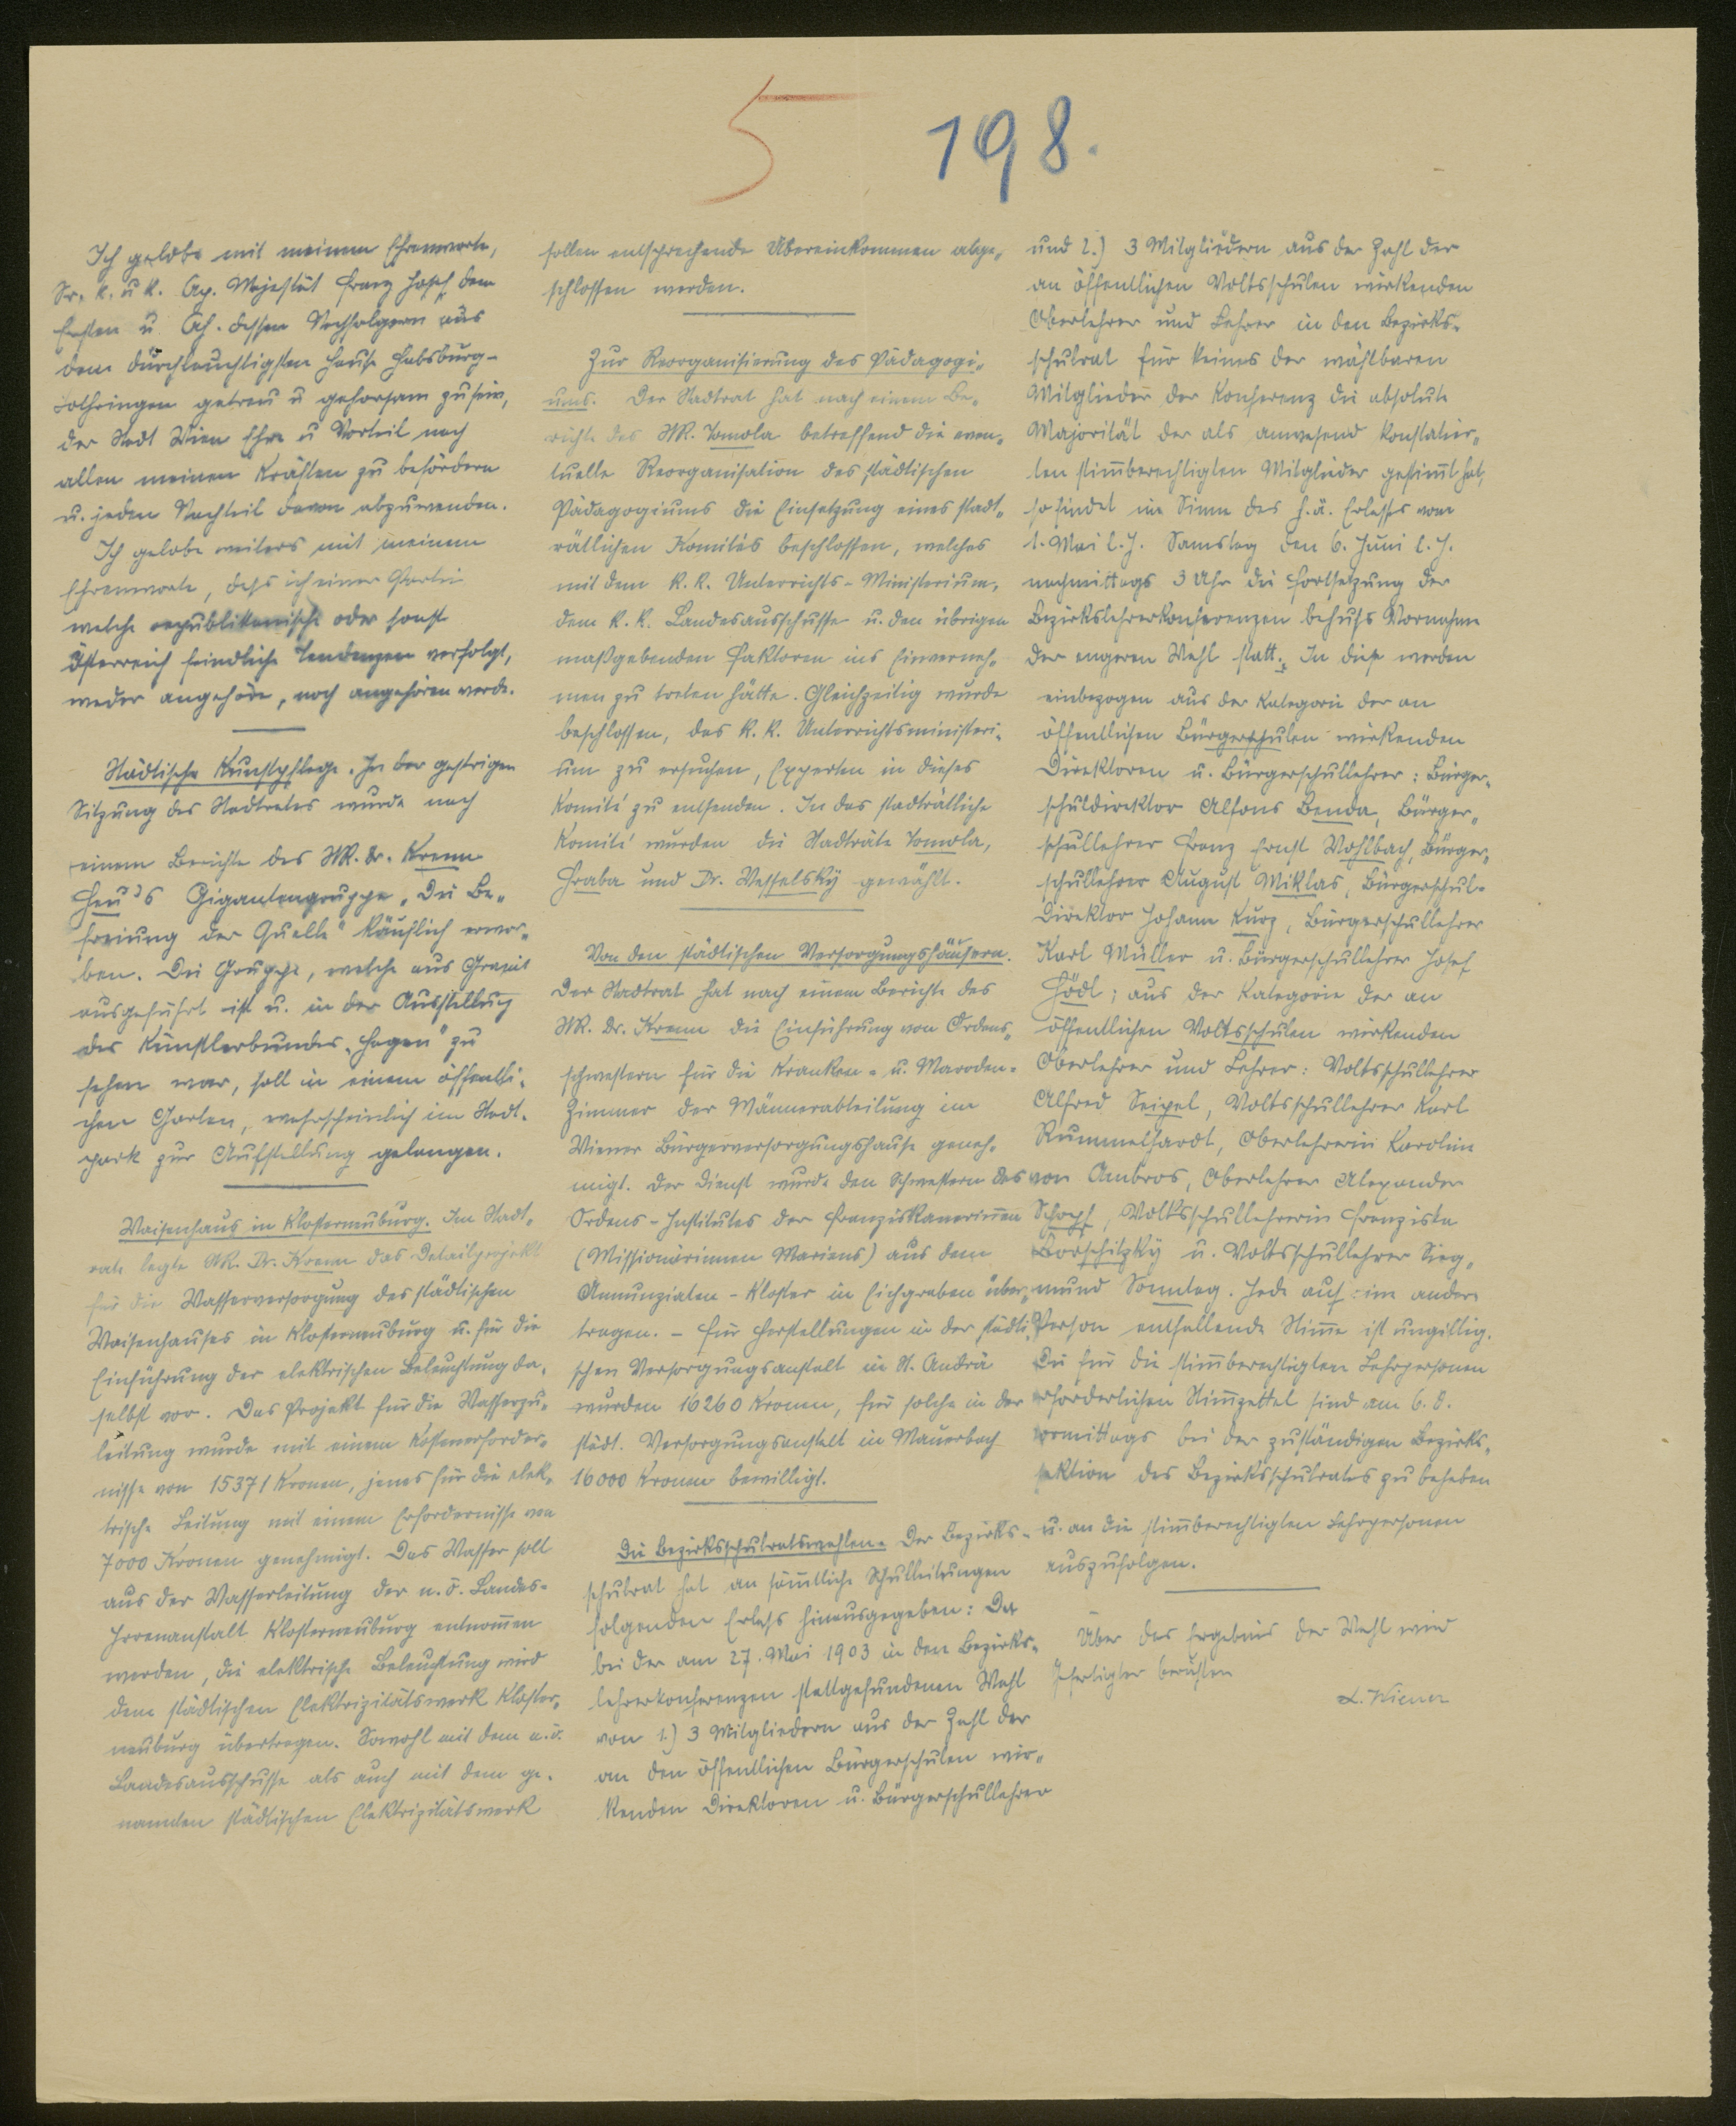 5 198.
Ich gelobe mit meinem Ehrenworte,
Sr. k. u k. Ap. Majestät Franz Josef dem
Ersten u. Ah. dessen Nachfolgern aus
dem durchlauchtigsten Hause Habsburg-
Lothringen getreu u gehorsam zu sein,
der Stadt Wien Ehre u Vorteil nach
allen meinen Kräften zu befördern
u. jeden Nachteil davon abzuwenden.
Ich gelobe weiters mit meinem
Ehrenworte, daß ich einer Partei
welche republikanische oder sonst
Österreich feindliche Tendenzen verfolgt,
weder angehöre, noch angehören werde.
Städtische Kunstpflege. In der gestrigen
Sitzung des Stadtrates wurde nach
einem Berichte des StR. Dr. Krenn
Heu's Gigantengruppe „Die Be„
freiung der Quelle" käuflich erwor„
ben. Die Gruppe, welche aus Granit
ausgeführt ist u. in der Ausstellung
des Künstlerbundes „Hagen" zu
sehen war, soll in einem öffentli-
chen Garten, wahrscheinlich im Stadt-
park zur Aufstellung gelangen.
Waisenhaus in Klosterneuburg. Im Stadt„
rate legte StR. Dr. Krenn das Detailprojekt
für die Wasserversorgung des städtischen
Waisenhauses in Klosterneuburg u. für die
Einführung der elektrischen Beleuchtung da„
selbst vor. Das Projekt für die Wasserzu„
leitung wurde mit einem Kostenerforder„
nisse von 15371 Kronen, jenes für die elek„
trische Leitung mit einem Erfordernisse von
7000 Kronen genehmigt. Das Wasser soll
aus der Wasserleitung der n.ö. Landes-
Irrenanstalt Klosterneuburg entnom̄en
werden, die elektrische Beleuchtung wird
dem städtischen Elektrizitätswerk Kloster„
neuburg übertragen. Sowohl mit dem n.ö.
Landesausschusse als auch mit dem ge-
nannten städtischen Elektrizitätswerk
sollen entsprechende Übereinkommen abge„
schlossen werden.
Zur Reorganisierung des Pädagogi„
ums. Der Stadtrat hat nach einem Be„
richte des StR. Tomola betreffend die even„
tuelle Reorganisation des städtischen
Pädagogiums die Einsetzung eines stadt„
rätlichen Komités beschlossen, welches
mit dem k. k. Unterrichts-Ministerium,
dem k. k. Landesausschusse u. den übrigen
maßgebenden Faktoren ins Einverneh„
men zu treten hätte. Gleichzeitig wurde
beschlossen, das k. k. Unterrichtsministeri„
um zu ersuchen, Experten in dieses
Komité zu entsenden. In das stadträtliche
Komité wurden die Stadträte Tomola,
Hraba und Dr. Wesselsky gewählt.
Von den städtischen Versorgungshäusern.
Der Stadtrat hat nach einem Berichte des
StR. Dr. Krenn die Einführung von Ordens„
schwestern für die Kranken- u. Maroden-
Zimmer der Männerabteilung im
Wiener Bürgerversorgungshause geneh„
migt. Der Dienst wurde den Schwestern des
Ordens-Institutes der Franziskanerin̄en
(Missionärinnen Mariens) aus dem
Annunziaten-Kloster in Eichgraben über„
tragen. - Für Herstellungen in der städti„
schen Versorgungsanstalt in St. Andrä
wurden 16260 Kronen, für solche in der
städt. Versorgungsanstalt in Mauerbach
16000 Kronen bewilligt.
Die Bezirksschulratswahlen. Der Bezirks-
schulrat hat an säm̄tliche Schulleitungen
folgenden Erlaß hinausgegeben: Da
bei der am 27. Mai 1903 in den Bezirks-
lehrerkonferenzen stattgefundenen Wahl
von 1.) 3 Mitgliedern aus der Zahl der
an den öffentlichen Bürgerschulen wir„
kenden Direktoren u. Bürgerschullehrer
und 2.) 3 Mitgliedern aus der Zahl der
an öffentlichen Volksschulen wirkenden
Oberlehrer und Lehrer in den Bezirks-
schulrat für keines der wählbaren
Mitglieder der Konferenz die absolute
Majorität der als anwesend konstatier„
ten stim̄berechtigten Mitglieder gestim̄t hat,
so findet im Sinne des h.ä. Erlasses vom
1. Mai l. J. Samstag den 6. Juni l. J.
nachmittags 3 Uhr die Fortsetzung der
Bezirkslehrerkonferenzen behufs Vornahme
der engeren Wahl statt. In diese werden
einbezogen aus der Kategorie der an
öffentlichen Bürgerschulen wirkenden
Direktoren u. Bürgerschullehrer: Bürger„
schuldirektor Alfons Benda, Bürger„
schullehrer Franz Ernst Wohlbach, Bürger„
schullehrer August Miklas, Bürgerschul-
Direktor Johann Kurz, Bürgerschullehrer
Karl Müller u. Bürgerschullehrer Josef
Hödl; aus der Kategorie der an
öffentlichen Volksschulen wirkenden
Oberlehrer und Lehrer: Volksschullehrer
Alfred Seipel, Volksschullehrer Karl
Rummelhardt, Oberlehrerin Karoline
von Ambros, Oberlehrer Alexander
Schopf, Volksschullehrerin Franziska
Borschitzky u. Volksschullehrer Sieg„
mund Sonntag. Jede auf eine andere
Person entfallende Stim̄e ist ungiltig.
Die für die stim̄berechtigten Lehrpersonen
erforderlichen Stim̄zettel sind am 6. d.
vormittags bei der zuständigen Bezirks„
sektion des Bezirksschulrates zu beheben
u. an die stim̄berechtigten Lehrpersonen
auszufolgen.
Über das Ergebnis der Wahl wird
Gefertigter berichten
L. Wiener